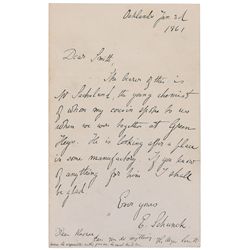 Oaklands Jan. 2d
1861
Dear Smith,
The bearer of this is
Mr the young chemist
of whom my cousin spoke to you
when we were together at Green
Heys. He is looking after a place
in some manufactory. If you know
of anything for him I shall
be glad.
Ever yours
E. Schunck
Dear
Can you do anything